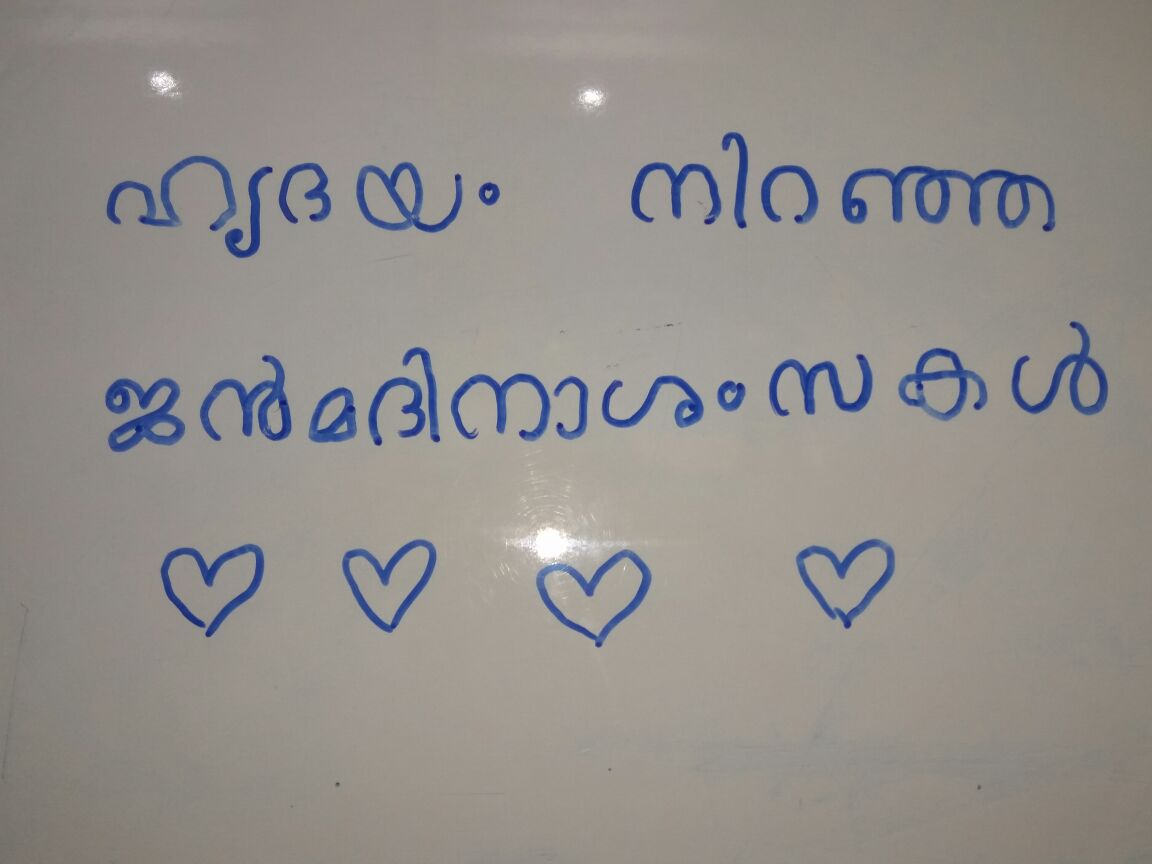 ഹൃദയം നിറഞ്ഞ
ജൻമദിനാശംസകൾ